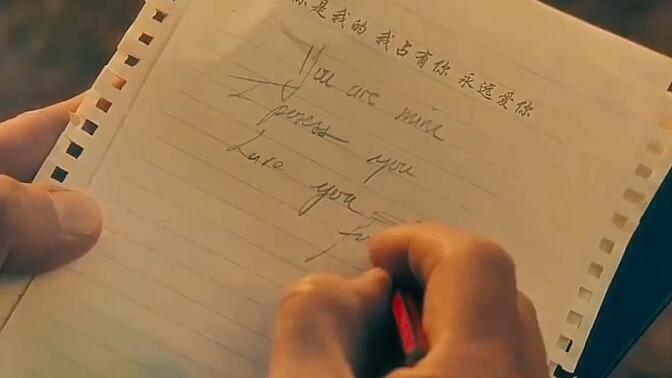 你是我的 我占有你 永远爱你
You are mine
I posess you
Love you